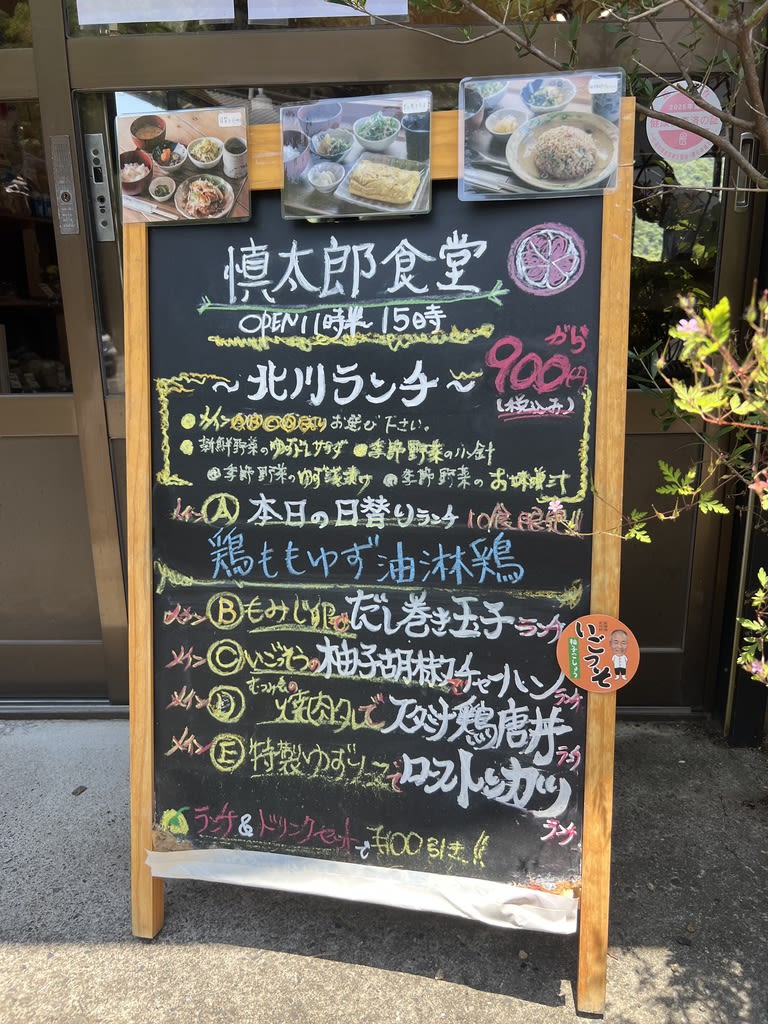 慎太郎食堂
OPEN11時半~15時
900円から
(税込み)
~北川ランチ~
メイン お選び下さい。
新鮮野菜のゆずドレサラダ 季節野菜の小鉢
季節野菜のゆず 漬け 季節野菜のお味噌汁
メインⒶ本日の日替りランチ 10食限定!!
鶏ももゆず油淋鶏
メインⒷもみじ卵でだし巻き玉子ランチ
メインⒸいごっそうの柚子胡椒でチャーハンランチ
メインⒹ 焼肉タレでスタミナ鶏唐丼ランチ
メインⒺ特製ゆず でローストンカツランチ
ランチ&ドリンクセットで¥100引き!!
いごっそ
柚子こしょう